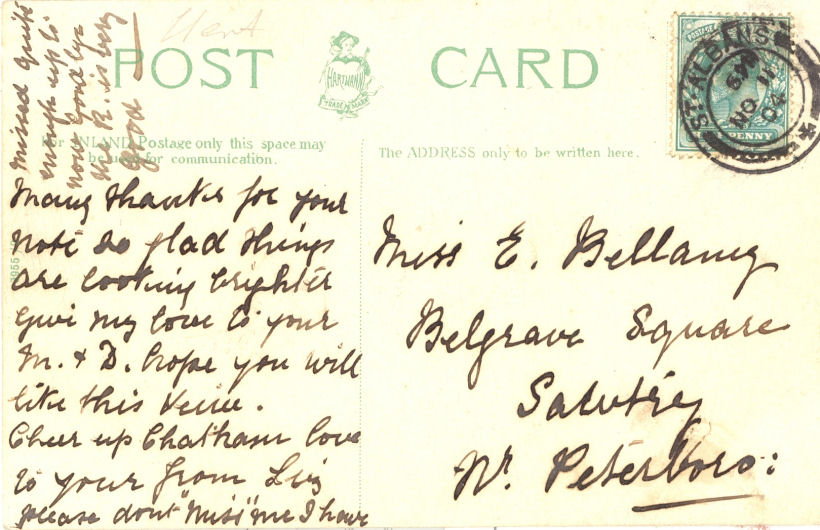 Herts
POST CARD
HARTMANN
TRADE MARK
For INLAND Postage only this space may
be used for communication.
The ADDRESS only to be written here.
POSTAGE
PENNY
ST. ALBANS
NO 11
04
Many thanks for your
note so glad things
are looking brighter
Give my love to your
M. & D. hope you will
like this view.
Cheer up Chatham love
to your from
please dont "Miss" me I have
missed quite
enough up to
now Goodbye
the K. is very
good
Miss E. Bellamy
Belgrave Square
Sawtry
Nr. Peterboro: